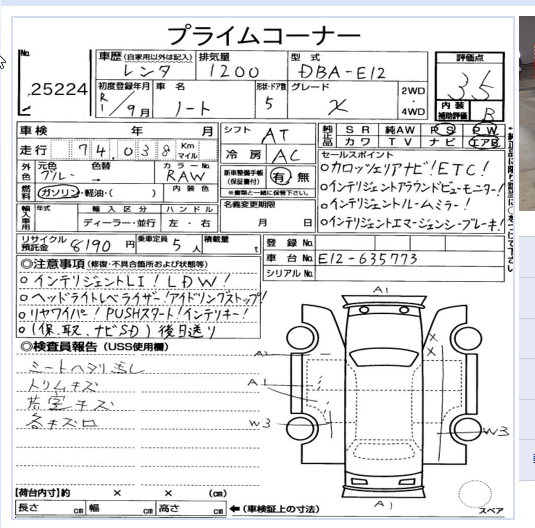 プライムコーナー
No. 25224
車歴 (自家用以外は記入) レンタ
排気量 1200
型式 DBA-E12
評価点 3.5
初度登録年月 R1/9月
車名 ノート
形状・ドア数 5
グレード X
2WD・4WD
内装補助評価 B
車検 年 月
シフト AT
純正品 SR 純AW PS PW
カワ TV ナビ エアB
走行 74,038 Km マイル
冷房 AC
セールスポイント
○カロッツェリアナビ!ETC!
○インテリジェントアラウンドビューモニター!
○インテリジェントルームミラー!
○インテリジェントエマージェンシーブレーキ!
外色 元色 ブルー 色替 カラーNo. RAW
新車整備手帳(保証書付) 有・無
※書類と一緒に保管下さい。
燃料 ガソリン・軽油・( ) 内装色
名義変更期限 月 日
輸入車用 年式 輸入区分 ハンドル
ディーラー・並行 左・右
リサイクル預託金 8190円 乗車定員 5人 積載量 t
登録No.
車台No. E12-635773
シリアルNo.
◎注意事項 (修復・不具合箇所および状態等)
○インテリジェントLI!LDW!
○ヘッドライトレベライザー!アイドリングストップ!
○リヤワイパー!PUSHスタート!インテリキー!
○(保、取、ナビSD)後日送り
◎検査員報告 (USS使用欄)
シートヘタリ汚し
トリムキズ
荷室キズ
各キズロ
A1
X
X
A1
A1
W3
W3
A1
スペア
【荷台内寸】約 × × (cm)
長さ cm 幅 cm 高さ cm ←(車検証上の寸法)